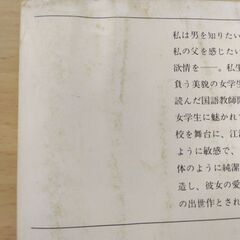 私は男を知りたい
私の父を感じたい
欲情を――。私生
負う美貌の女学生
読んだ国語教師
女学生に魅かれて
校を舞台に、江
ように敏感で、
体のように純潔
造し、彼女の愛
の出世作とされ